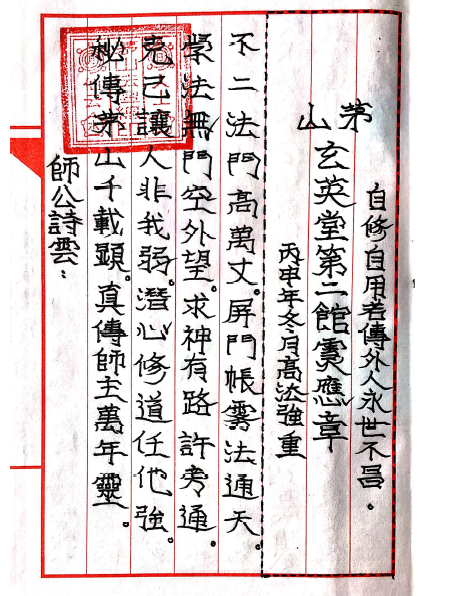 自修自用若傳外人永世不昌。
茅山
玄英堂第二館霊應章
丙申年冬月高法強重
不二法門高萬丈。屏門帳霊法通天。
學法無門空外望。求神有路許旁通。
克己讓人非我弱。潛心修道任他強。
秘傳茅山千載顕。真傳師主萬年靈。
師公詩雲：